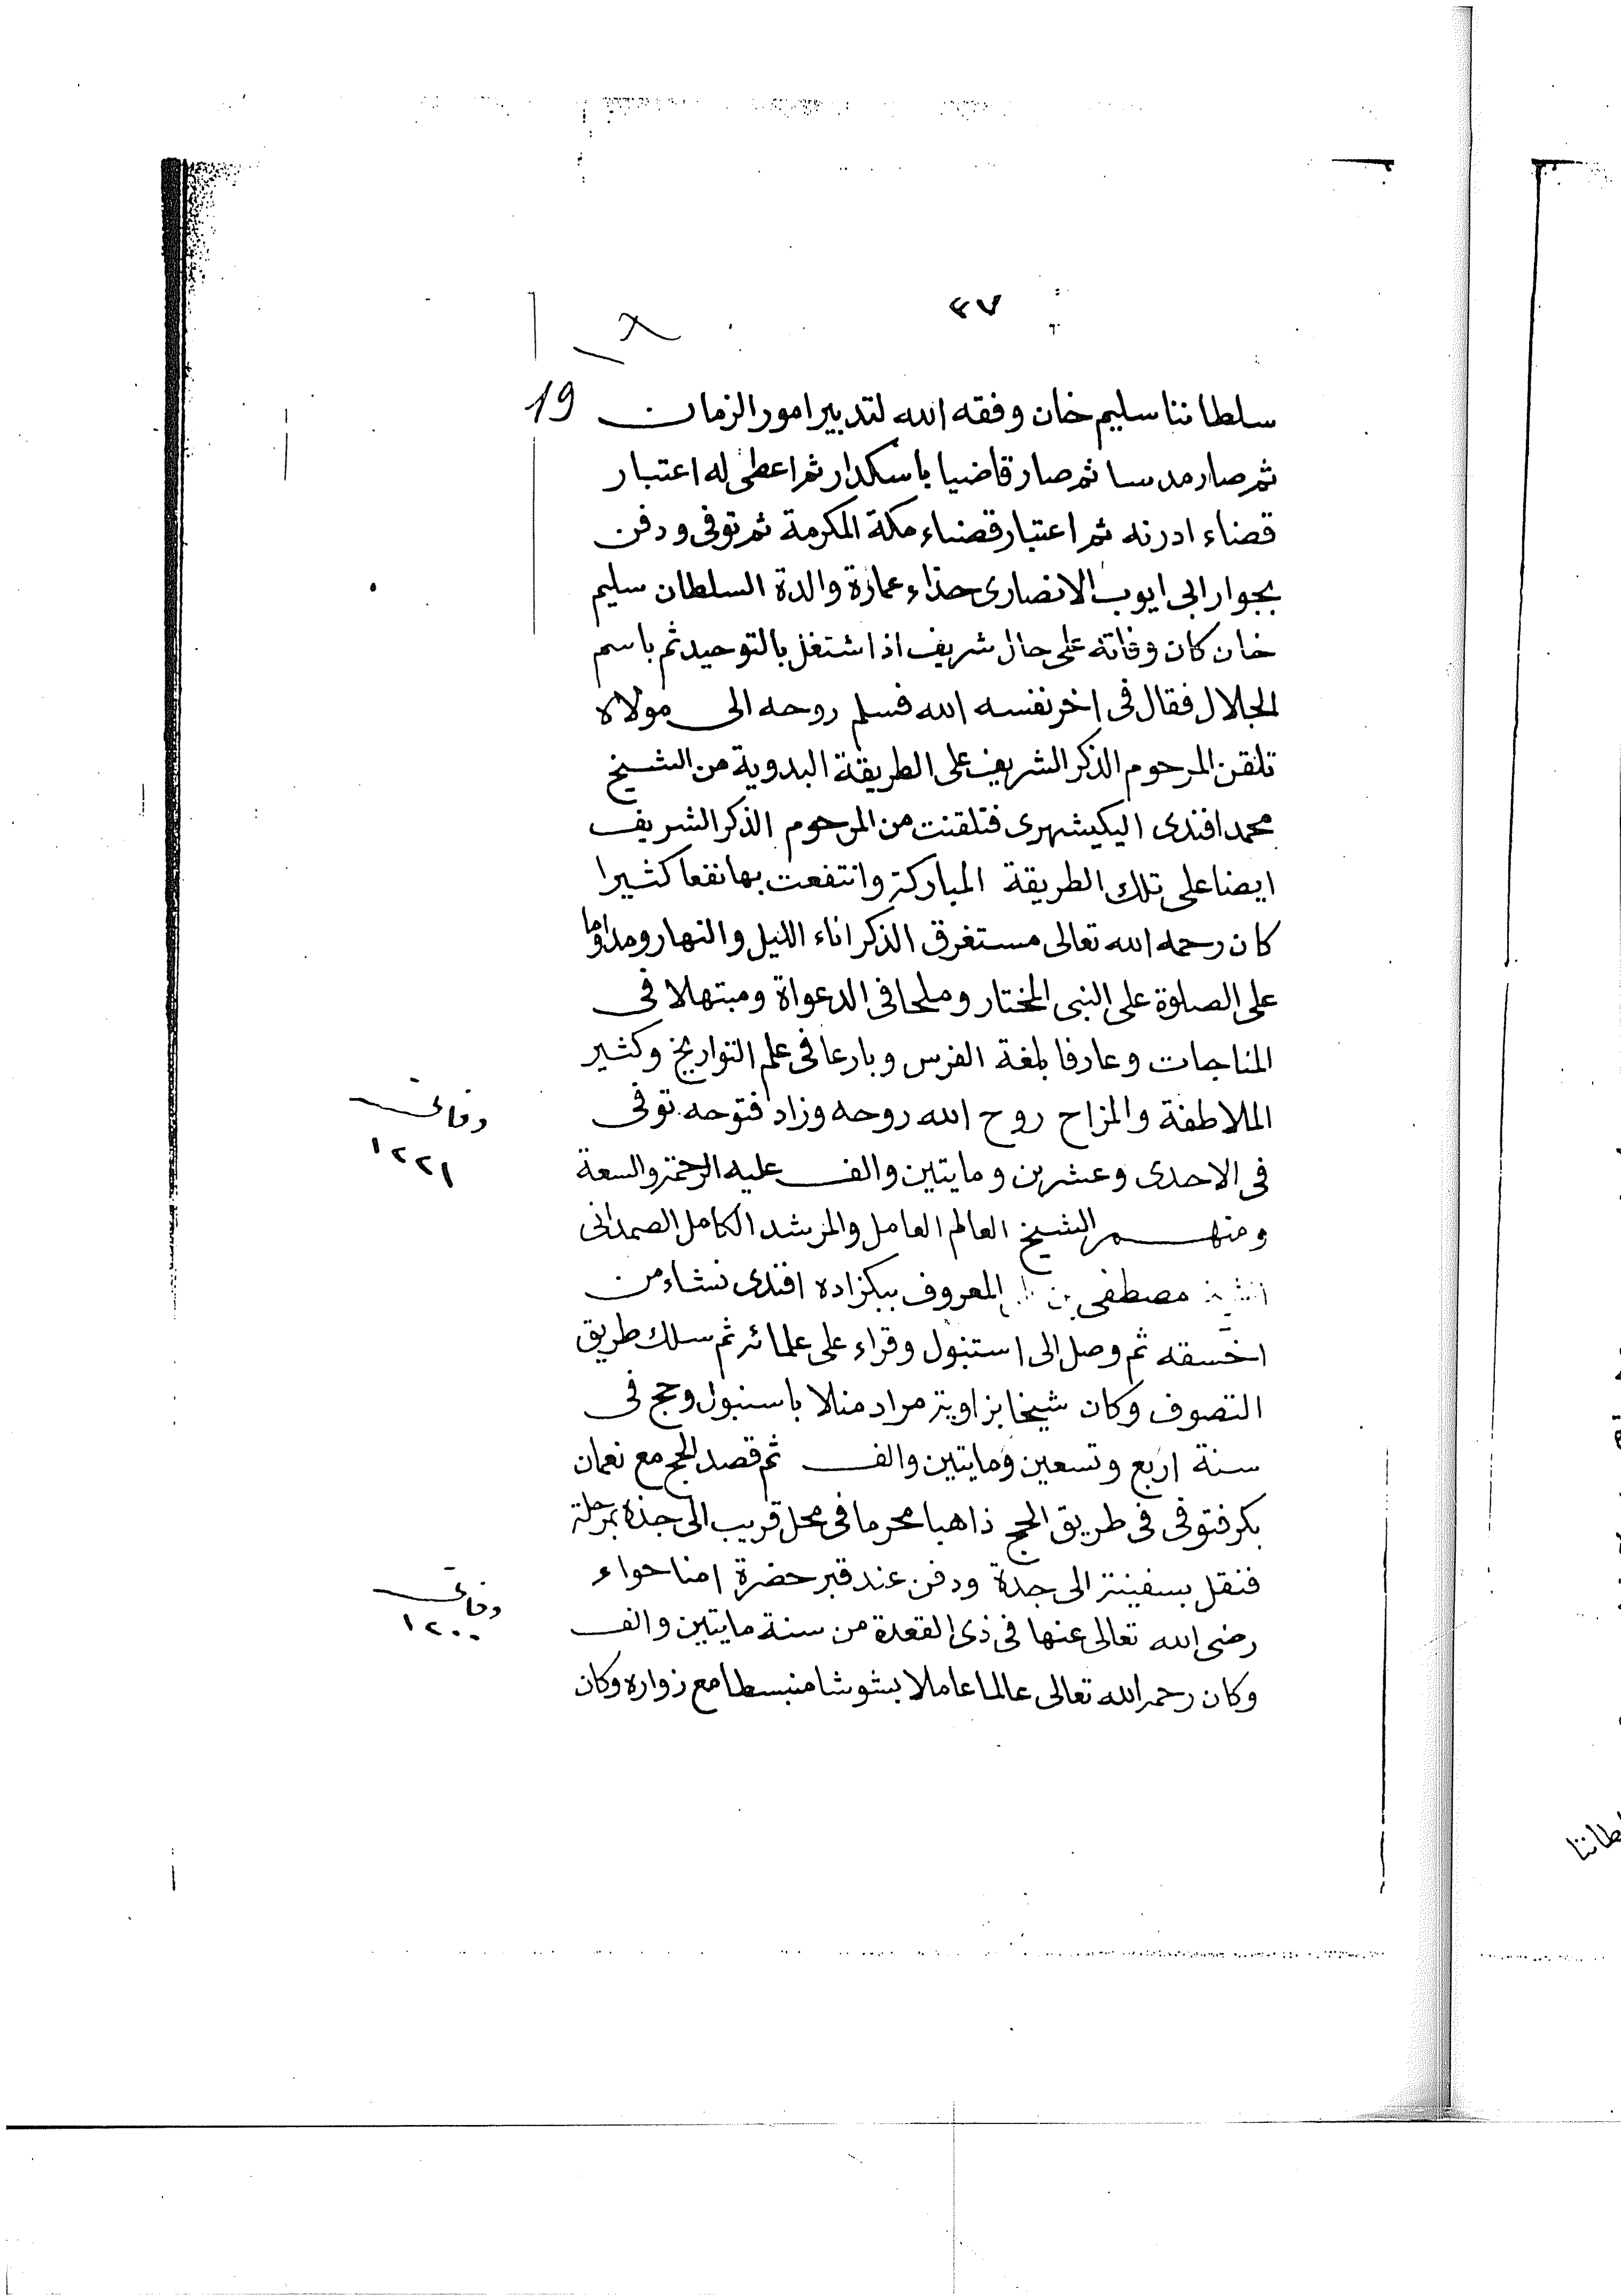 ٤٧
19
سلطاننا سليم خان وفقه الله لتدبير امور الزمان
ثم صار مدرسا ثم صار قاضيا باسكدار ثم اعطى له اعتبار
قضاء ادرنه ثم اعتبار قضاء مكة المكرمة ثم توفى ودفن
بجوار ابى ايوب الانصارى حذاء عمارة والدة السلطان سليم
خان كان وفاته على حال شريف اذا اشتغل بالتوحيد ثم باسم
الجلال فقال فى اخر نفسه الله فسلم روحه الى مولاه
تلقن المرحوم الذكر الشريف على الطريقة البدوية من الشيخ
محمد افندى اليكيشهرى فتلقنت من المرحوم الذكر الشريف
ايضا على تلك الطريقة المباركة وانتفعت بها نفعا كثيرا
كان رحمه الله تعالى مستغرق الذكر اناء الليل والنهار ومداوما
على الصلوة على النبى المختار وملحا فى الدعواة ومبتهلا فى
المناجات وعارفا بلغة الفرس وبارعا فى علم التواريخ وكثير
الملاطفة والمزاح روح الله روحه وزاد فتوحه توفى
وفاتى
١٢٢١
فى الاحدى وعشرين ومايتين والف عليه الرحمة والسعة
ومنهم الشيخ العالم العامل والمرشد الكامل الصمدانى
مصطفى بن المعروف ببكزاده افندى نشاء من
اخسقه ثم وصل الى استنبول وقراء على علمائه ثم سلك طريق
التصوف وكان شيخا بزاوية مراد منلا باسنبول وحج فى
سنة اربع وتسعين ومايتين والف ثم قصد الحج مع نعمان
بكر فتوفى فى طريق الحج ذاهبا محرما فى محل قريب الى جده بمرحلة
فنقل بسفينة الى جدة ودفن عند قبر حضرة امنا حواء
وفاتى
١٢٠٠
رضى الله تعالى عنها فى ذى القعدة من سنة مايتين والف
وكان رحمه الله تعالى عالما عاملا بشوشا منبسطا مع زواره وكان